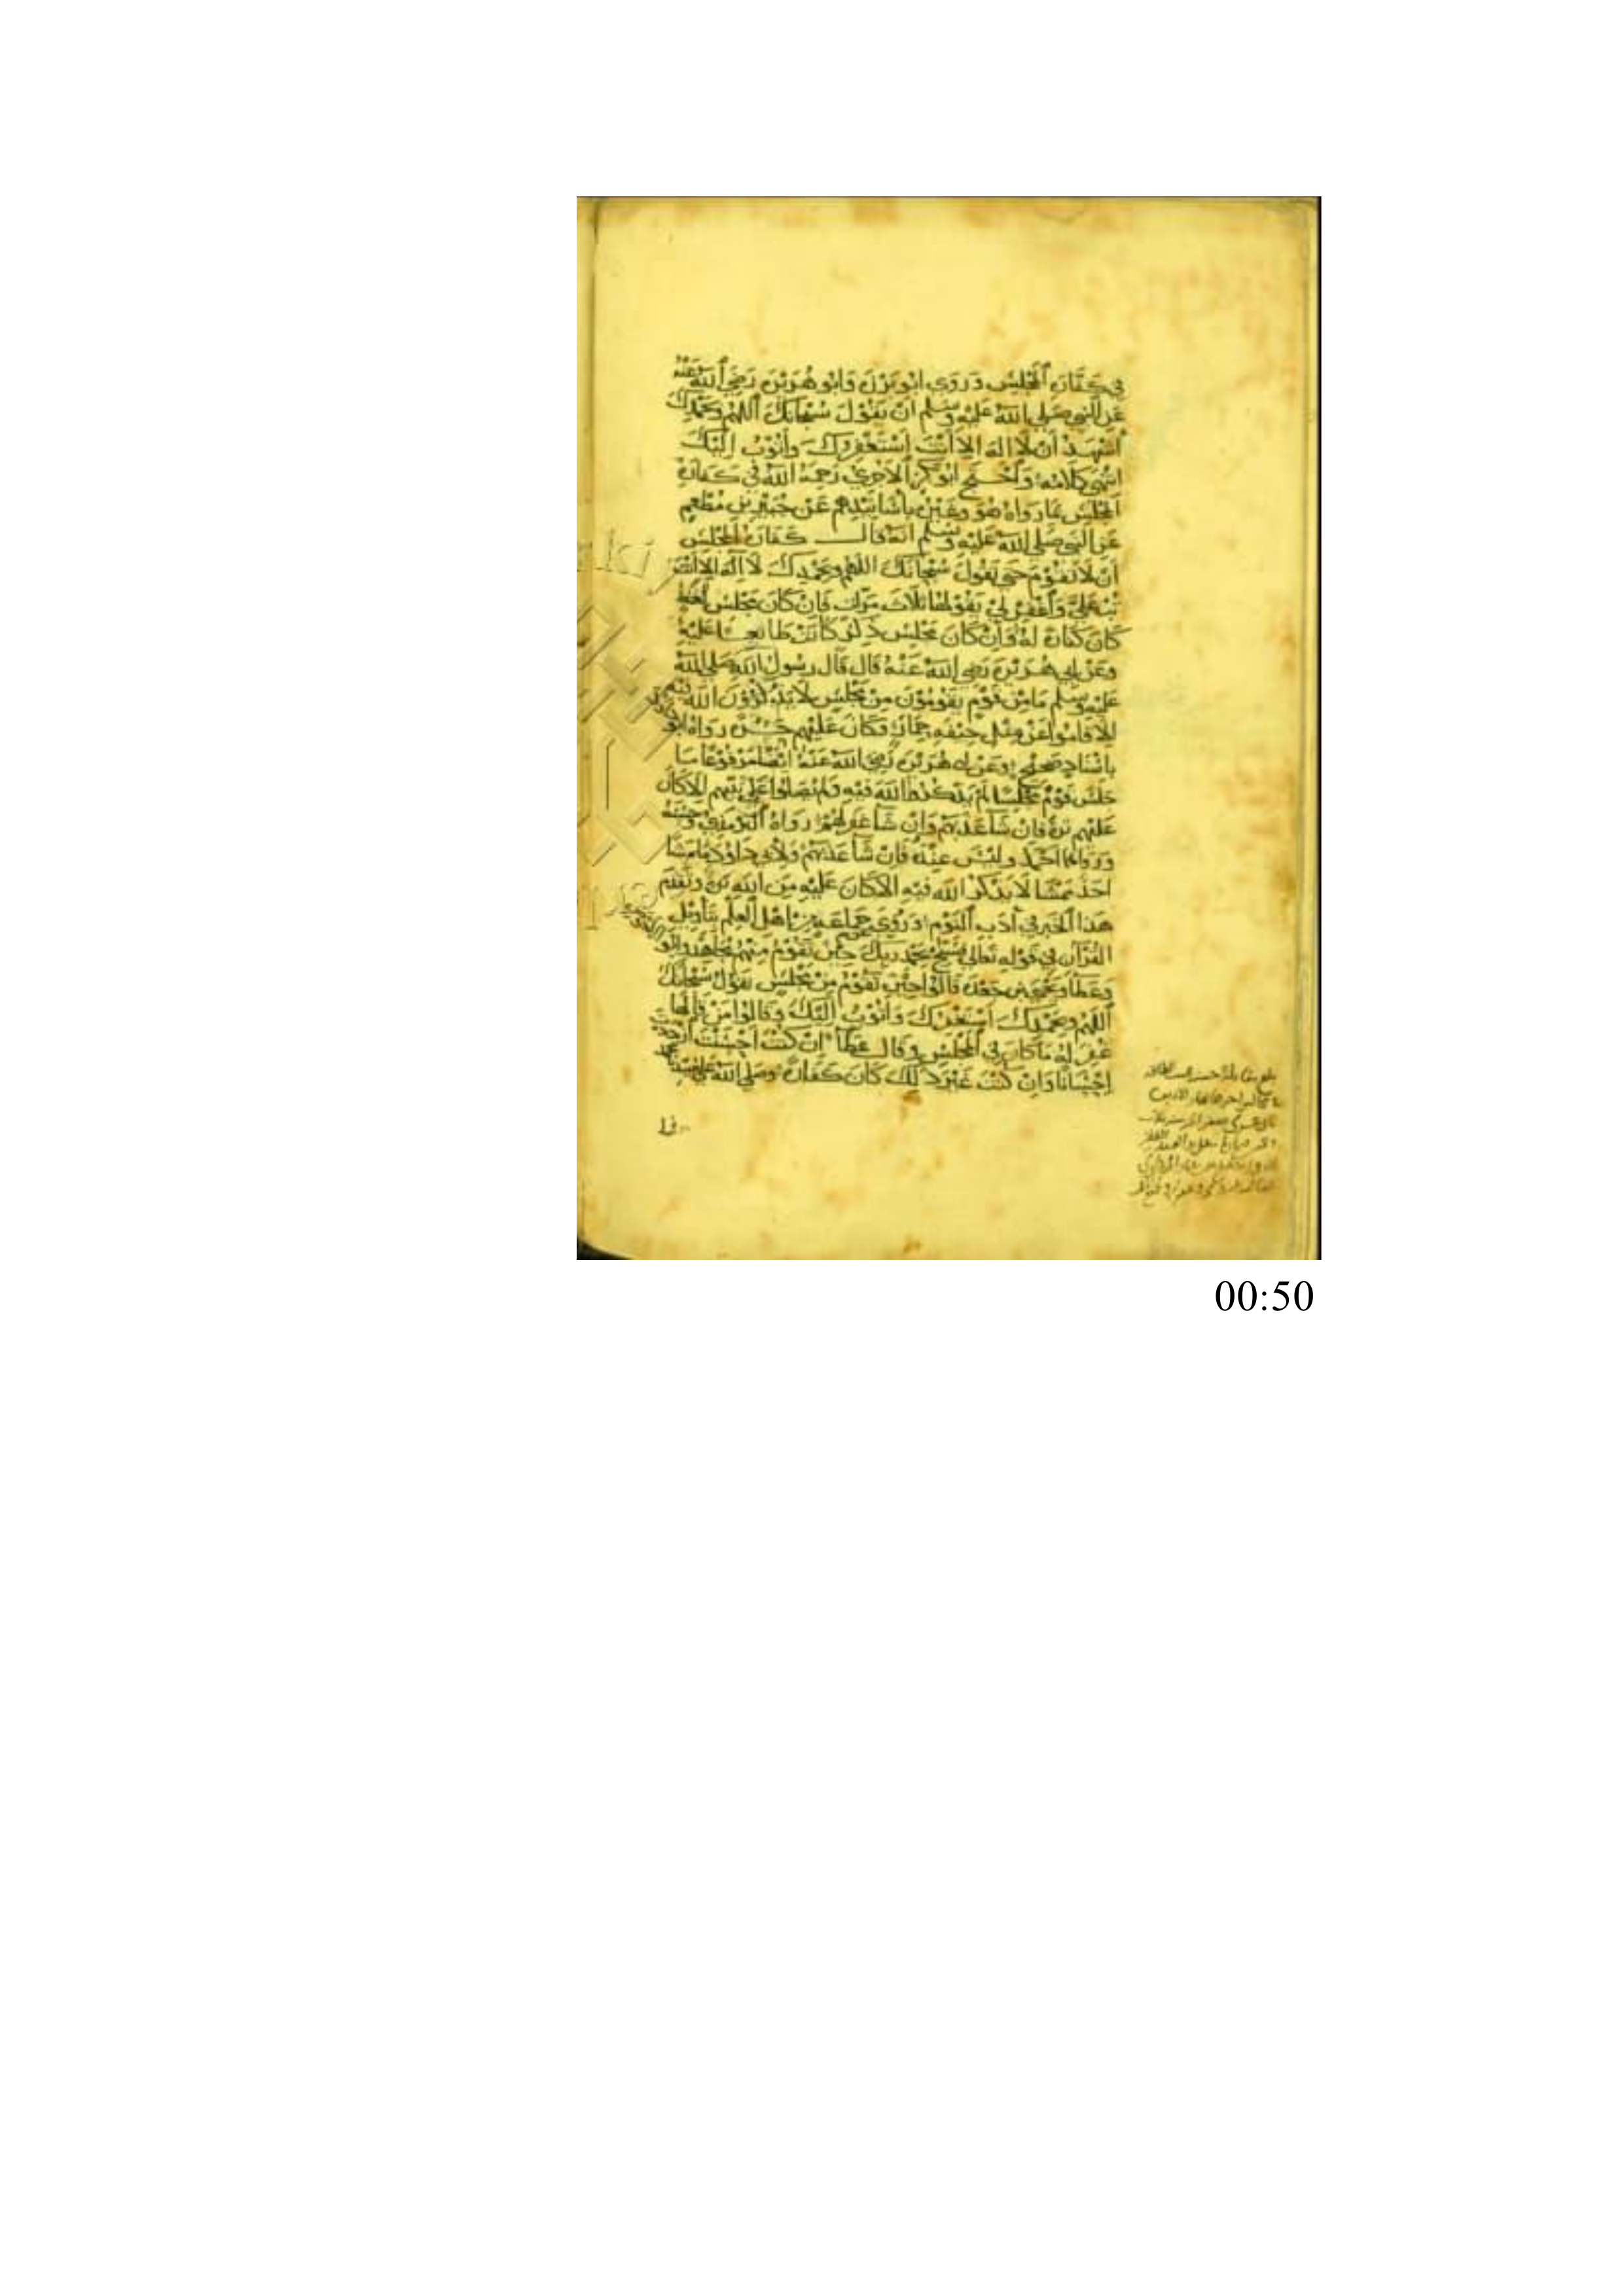 في كفارة المجلس وروى ابو برزة وابو هريرة رضي الله عنه
عن النبي صلى الله عليه وسلم ان يقول سبحانك اللهم وبحمدك
أشهد أن لا اله الا أنت استغفرك وأتوب إليك
انتهى كلامه واحتج ابو بكر الآجري رحمه الله في كفارة
المجلس بما رواه هو وغيره باسانيدهم عن جبير بن مطعم
عن النبي صلى الله عليه وسلم انه قال كفارة المجلس
أن لا تقوم حتى تقول سبحانك اللهم وبحمدك لا اله الا أنت
تب علي واغفر لي يقولها ثلاث مرات فإن كان مجلس لغط
كان كفارة له وإن كان مجلس ذكر كانت طابعا عليه
وعن ابي هريرة رضي الله عنه قال قال رسول الله صلى الله
عليه وسلم ما من قوم يقومون من مجلس لا يذكرون الله فيه
الا قاموا عن مثل جيفة حمار وكان عليهم حسرة رواه ابو داود
باسناد صحيح وعن ابي هريرة رضي الله عنه ايضا مرفوعا ما
جلس قوم مجلسا لم يذكروا الله فيه ولم يصلوا على نبيهم الا كان
عليهم ترة فإن شاء عذبهم وإن شاء غفر لهم رواه الترمذي وحسنه
ورواه احمد وليس عنده فإن شاء عذبهم ولابي داود وما مشا
احد ممشا لا يذكر الله فيه الا كان عليه من الله ترة وتقدم
هذا الخبر في آداب النوم وروي عن جماعة من اهل العلم بتأويل
القرآن في قوله تعالى فسبح بحمد ربك حين تقوم منهم مجاهد وابو
وعطا ويحيى بن جعدة قالوا حين تقوم من مجلس تقول سبحانك
اللهم وبحمدك أستغفرك وأتوب إليك وقالوا من قالها
غفر له ما كان في المجلس وقال عطا إن كنت احسنت ازددت
إحسانا وإن كنت غير ذلك كان كفارة وصلى الله على سيدنا محمد
00:50